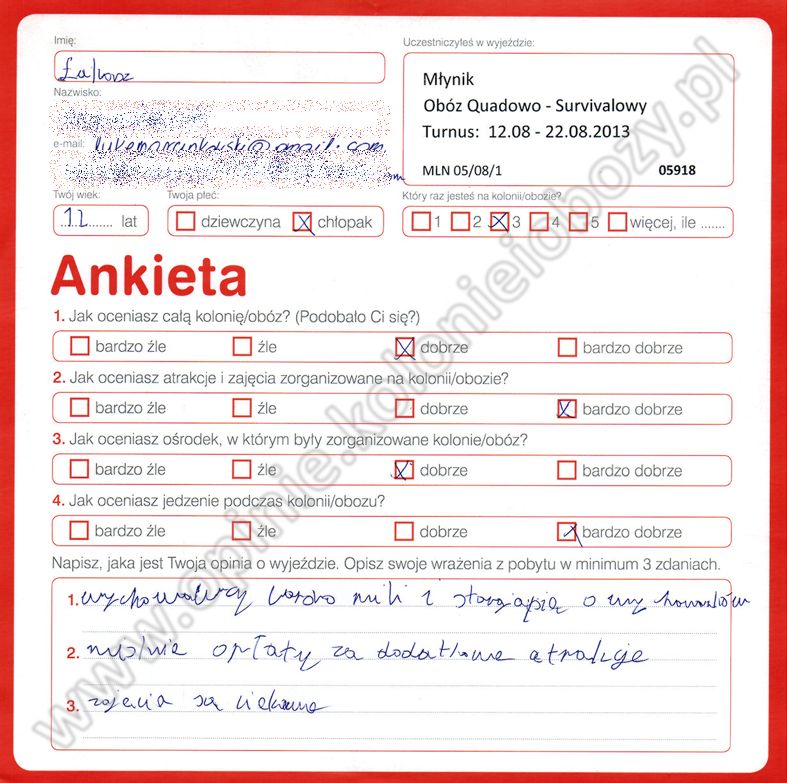 Imię:
Uczestniczyłeś w wyjeździe:
Nazwisko:
Młynik
Obóz Quadowo - Survivalowy
Turnus: 12.08 - 22.08.2013
e-mail:
MLN 05/08/1 05918
Twój wiek: Twoja płeć: Który raz jesteś na kolonii/obozie?
12 lat dziewczyna chłopak 1 2 3 4 5 więcej, ile .......
Ankieta
1. Jak oceniasz całą kolonię/obóz? (Podobało Ci się?)
bardzo źle źle dobrze bardzo dobrze
2. Jak oceniasz atrakcje i zajęcia zorganizowane na kolonii/obozie?
bardzo źle źle dobrze bardzo dobrze
3. Jak oceniasz ośrodek, w którym były zorganizowane kolonie/obóz?
bardzo źle źle dobrze bardzo dobrze
4. Jak oceniasz jedzenie podczas kolonii/obozu?
bardzo źle źle dobrze bardzo dobrze
Napisz, jaka jest Twoja opinia o wyjeździe. Opisz swoje wrażenia z pobytu w minimum 3 zdaniach.
1. wychowawcy bardzo mili i starają się o wychowanków
2. opłaty za dodatkowe atrakcje
3. zajęcia są ciekawe
www.opinie.kolonieiobozy.pl